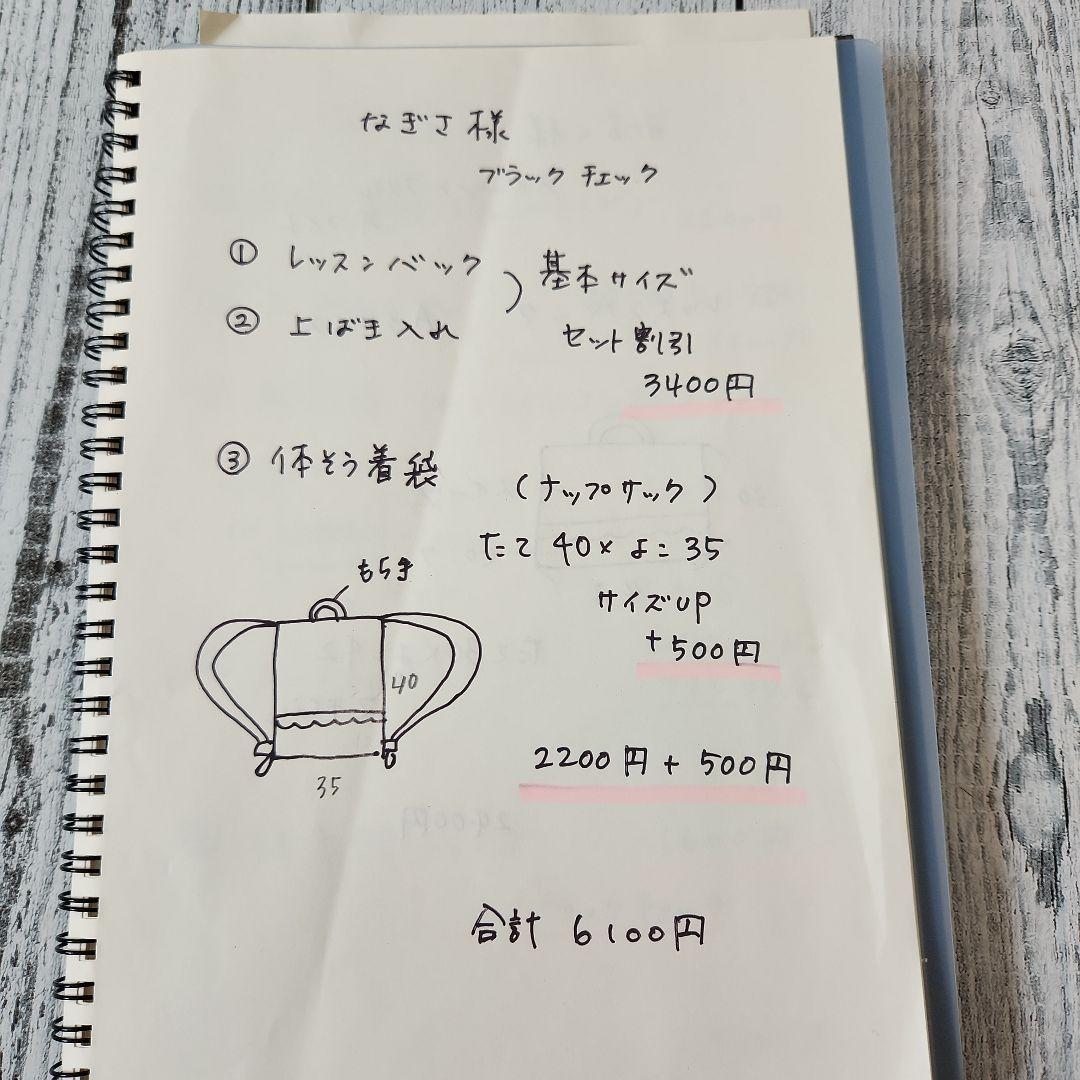 なぎさ様
ブラックチェック
① レッスンバック
②上ばき入れ
基本サイズ
セット割引
3400円
③ 体そう着袋
(ナップサック)
たて40×よこ35
サイズup
+500円
もち手
40
35
2200円+500円
合計 6100円